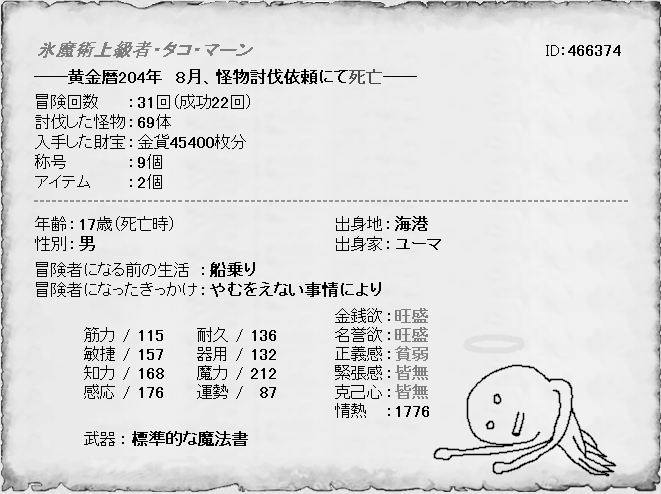 氷魔術上級者・タコ・マーン ID:466374
――黄金暦204年 8月、怪物討伐依頼にて死亡――
冒険回数 : 31回(成功22回)
討伐した怪物 : 69体
入手した財宝 : 金貨45400枚分
称号 : 9個
アイテム : 2個
年齢 : 17歳(死亡時) 出身地 : 海港
性別 : 男 出身家 : ユーマ
冒険者になる前の生活 : 船乗り
冒険者になったきっかけ : やむをえない事情により
金銭欲 : 旺盛
筋力 / 115 耐久 / 136 名誉欲 : 旺盛
敏捷 / 157 器用 / 132 正義感 : 貧弱
知力 / 168 魔力 / 212 緊張感 : 皆無
感応 / 176 運勢 / 87 克己心 : 皆無
情熱 : 1776
武器 : 標準的な魔法書